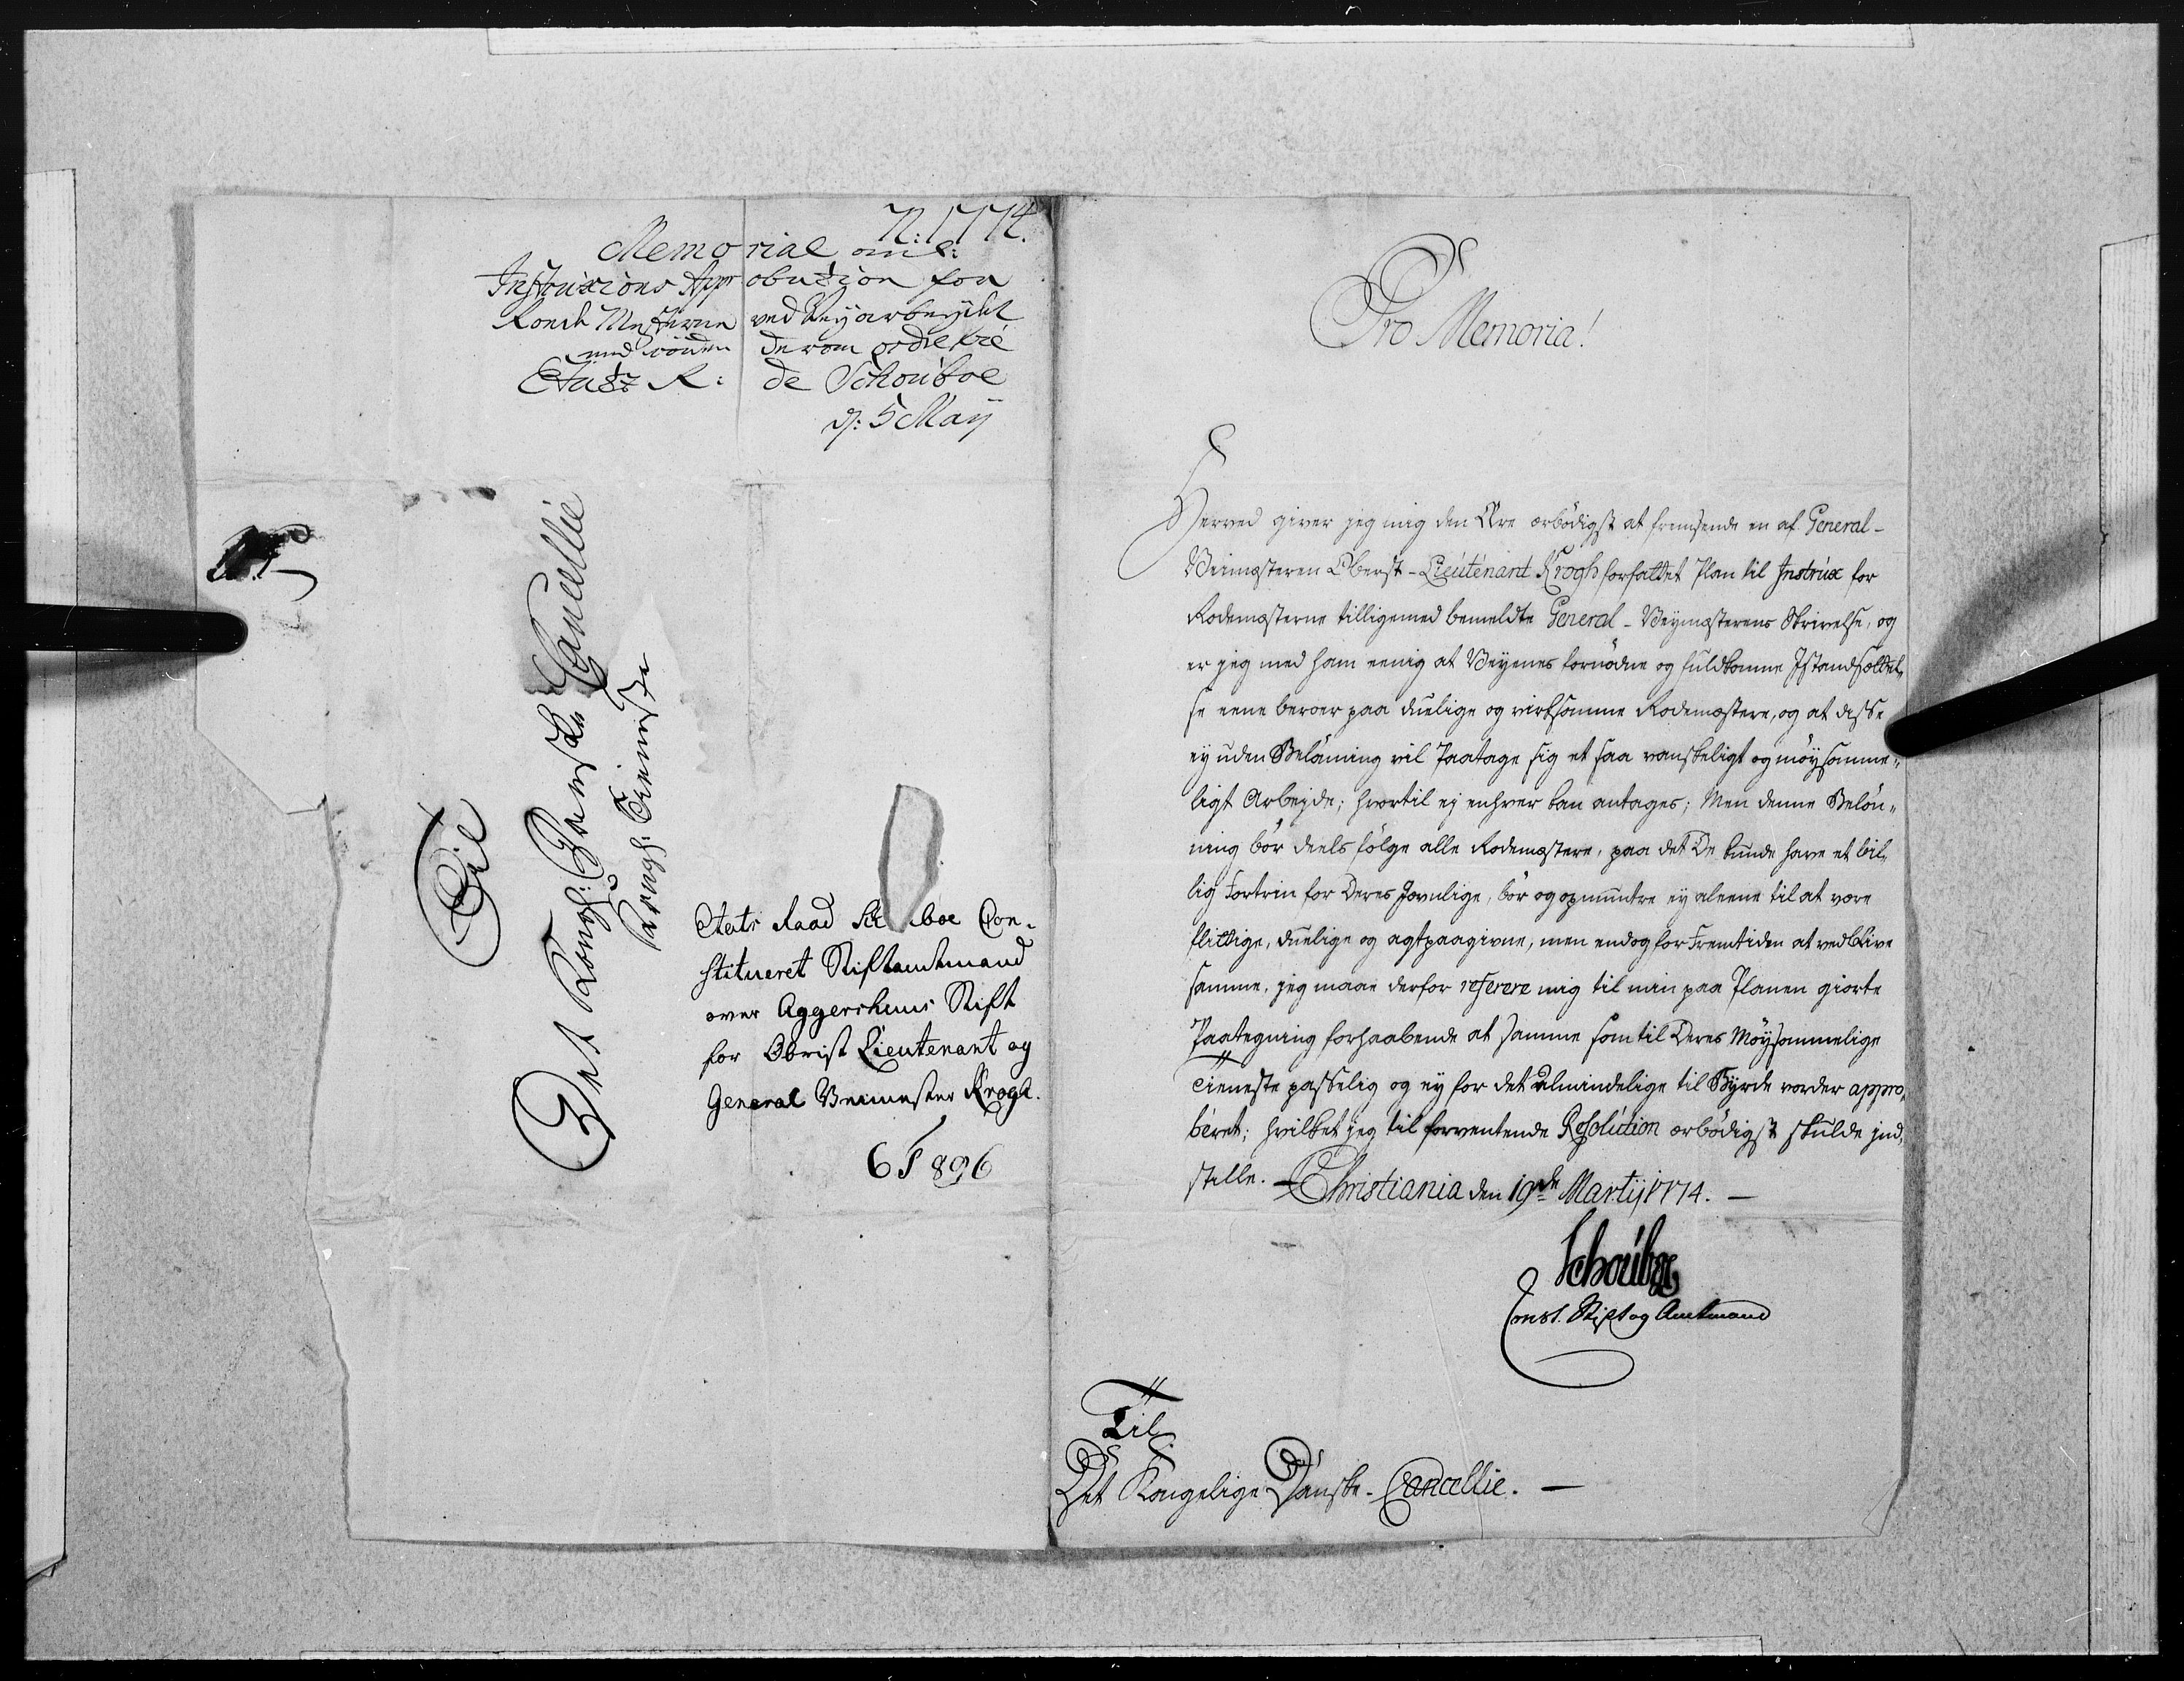 N: 1774.
Memorial om:
Instruxions Approbation for
Rode Mesterne ved Veyarbeydet
Etatz R: de Schouboe
d: 5 May
Til
Det Kongl: Danske Cancellie
Kongl: Tieneste
Etats Raad Schouboe Con-
stitueret Stiftamtmand
over Aggershuus Stift
for Obrist Lieutenant og
General Veimester Krogh.
6 S 896
Pro Memoria!
Herved giver jeg mig den Ære ærbödigst at fremsende en af General-
Veimesteren Oberst-Lieutenant Krogh forfattet Plan til Instrux for
Rodemesterne tilligemed bemeldte General-Veymesterens Skrivelse, og
er jeg med ham eenig at Veyenes fornödne og fuldkomne Istandsættel-
se eene beroer paa duelige og virksomme Rodemestere, og at disse
ey uden Belönning vil Paatage sig et saa vanskeligt og möysomme-
ligt Arbejde; hvortil ej enhver kan antages; Men denne Belön-
ning bör deels fölge alle Rodemestere, paa det De kunde have et bil-
lig Fortrin for Deres Jevnlige, bör og opmuntre ey aleene til at være
flittige, duelige og agtpaagivne, men endog for Fremtiden at vedblive
samme, jeg maae derfor referere mig til min paa Planen giorte
Paategning forhaabende at samme som til Deres Möysommelige
Tieneste passelig og ey for det almindelige til Byrde vorder appro-
beret; hvilket jeg til forventende Resolution ærbödigst skulde ind-
stille. - Christiania den 19de Martij 1774. -
Schouboe
Const. Stift og Amtmand
Til
Det Kongelige Danske-Cancellie. -